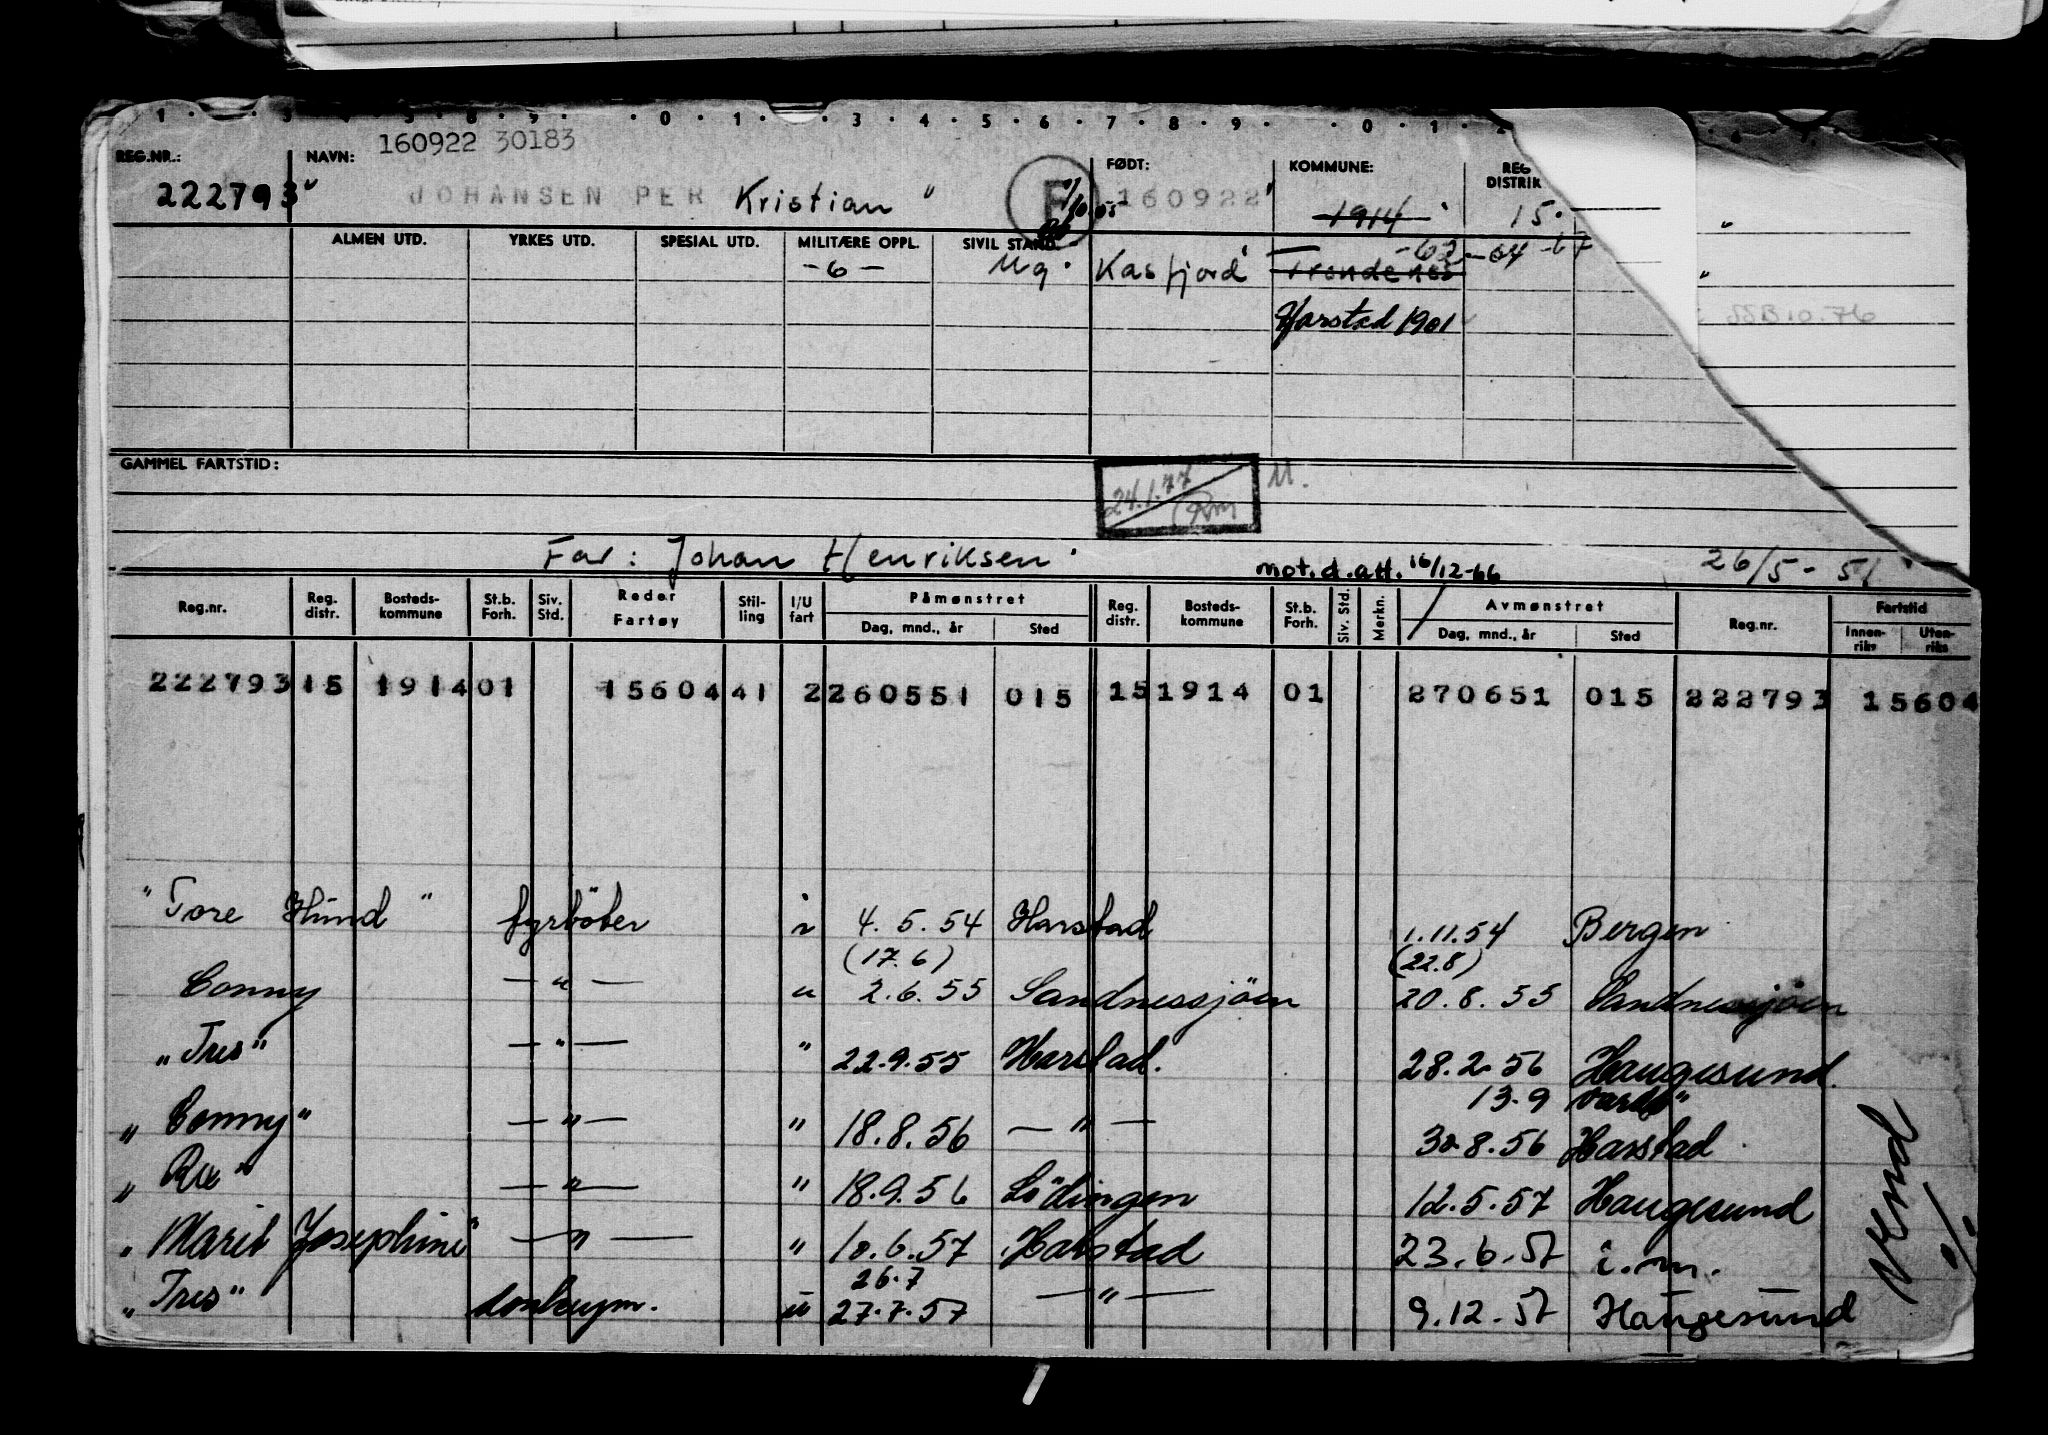 1 3 4 5 8 9 0 1 3 4 5 6 7 8 9 0 1
160922 30183
REG.NR.: NAVN: FØDT: KOMMUNE: REG DISTRIK
222793 JOHANSEN PER Kristian F 160922 1914 15
ALMEN UTD. YRKES UTD. SPESIAL UTD. MILITÆRE OPPL. SIVIL STAND. -62 -64 -67
-6- Ug. Kasfjord Trondenes
Harstad 1901
10.76
GAMMEL FARTSTID: 24.1.77 M.
Far: Johan Henriksen mot.d.att. 16/12-66 26/5-51
Reg.nr. Reg. distr. Bosteds-kommune St.b. Forh. Siv. Std. Reder Fartøy Stil-ling I/U fart Påmønstret Dag, mnd., år Sted Reg. distr. Bosteds-kommune St.b. Forh. Siv. Std. Merkn. Avmønstret Dag, mnd., år Sted Reg.nr. Fartstid Innen-riks Uten-riks
222793 15 1914 01 15604 41 2 260551 015 15 1914 01 270651 015 222793 15604
"Tore Hund" fyrböter i 4.5.54 Harstad 1.11.54 Bergen
(17.6) (22.8)
Conny — " — u 2.6.55 Sandnessjöen 20.8.55 Sandnessjöen
"Tres" — " — " 22.9.55 Harstad. 28.2.56 Haugesund.
13.9 Vardö"
"Conny" — " — " 18.8.56 — " — 30.8.56 Harstad
" " — " — " 18.9.56 Lödingen 12.5.57 Haugesund
"Marit Josephine" — " — " 10.6.57 Harstad 23.6.57 i.m.
26.7
"Tres" donkeym. u 27.7.57 — " — 9.12.57 Haugesund
Vend